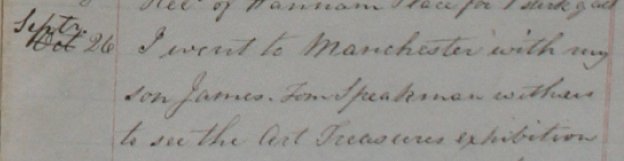 Rec. of Hannam Place for 1
Septr.
Oct 26 I went to Manchester with my
son James. Tom Speakman with us
to see the Art Treasures exhibition